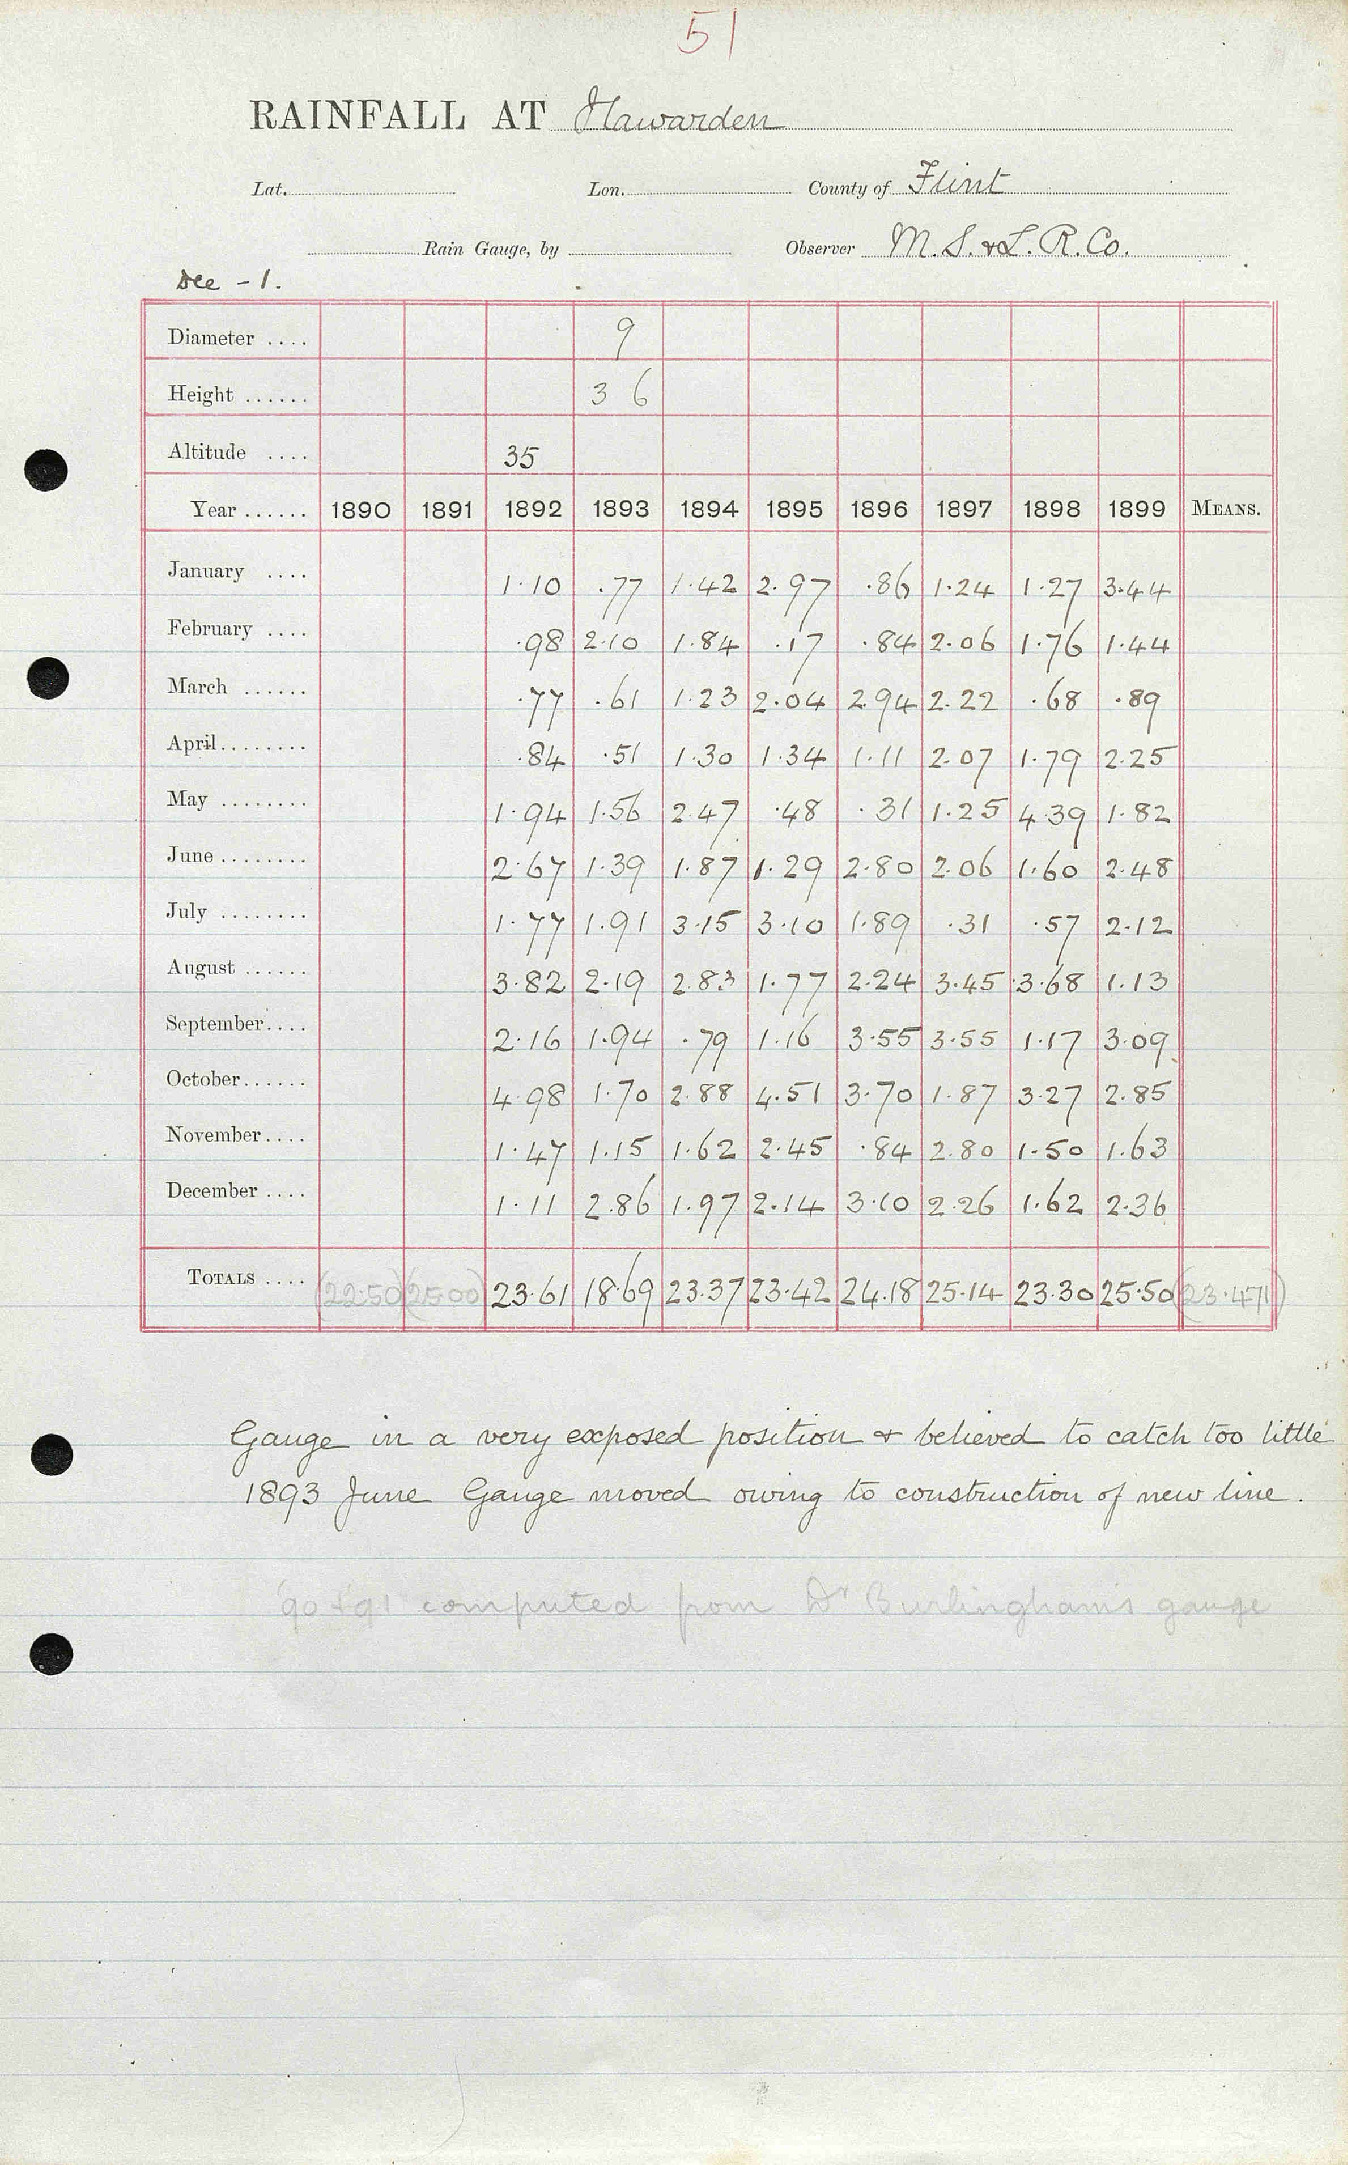 51
RAINFALL AT Hawarden
Lat. Lon. County of Flint
Rain Gauge, by Observer M. S. & L. R. Co.
Dee - 1.
Diameter .... 9
Height ...... 3 6
Altitude .... 35
Year ...... 1890 1891 1892 1893 1894 1895 1896 1897 1898 1899 MEANS.
January .... 1.10 .77 1.42 2.97 .86 1.24 1.27 3.44
February .... .98 2.10 1.84 .17 .84 2.06 1.76 1.44
March ...... .77 .61 1.23 2.04 2.94 2.22 .68 .89
April ........ .84 .51 1.30 1.34 1.11 2.07 1.79 2.25
May ........ 1.94 1.56 2.47 .48 .31 1.25 4.39 1.82
June ........ 2.67 1.39 1.87 1.29 2.80 2.06 1.60 2.48
July ........ 1.77 1.91 3.15 3.10 1.89 .31 .57 2.12
August ...... 3.82 2.19 2.83 1.77 2.24 3.45 3.68 1.13
September .... 2.16 1.94 .79 1.16 3.55 3.55 1.17 3.09
October ...... 4.98 1.70 2.88 4.51 3.70 1.87 3.27 2.85
November .... 1.47 1.15 1.62 2.45 .84 2.80 1.50 1.63
December .... 1.11 2.86 1.97 2.14 3.10 2.26 1.62 2.36
TOTALS .... (22.50) (25.00) 23.61 18.69 23.37 23.42 24.18 25.14 23.30 25.50 (23.471)
Gauge in a very exposed position & believed to catch too little
1893 June Gauge moved owing to construction of new line.
'90 + '91 computed from Dr Burlingham's gauge